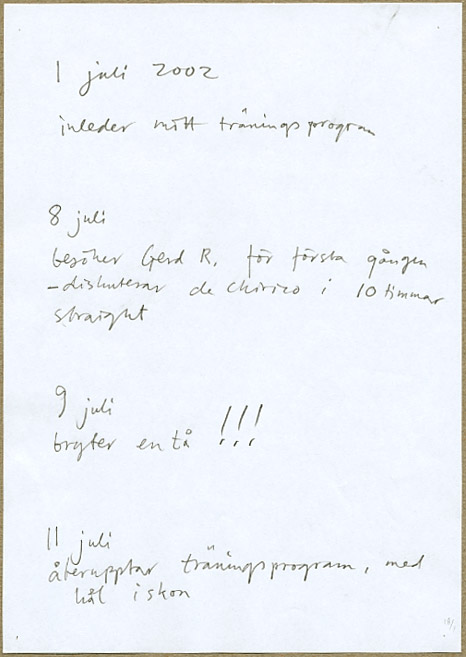 1 juli 2002
inleder mitt träningsprogram
8 juli
besöker Gerd R. för första gången
-diskuterar de Chirico i 10 timmar
straight
9 juli
bryter en tå !!!
11 juli
återupptar träningsprogram, med
hål i skon